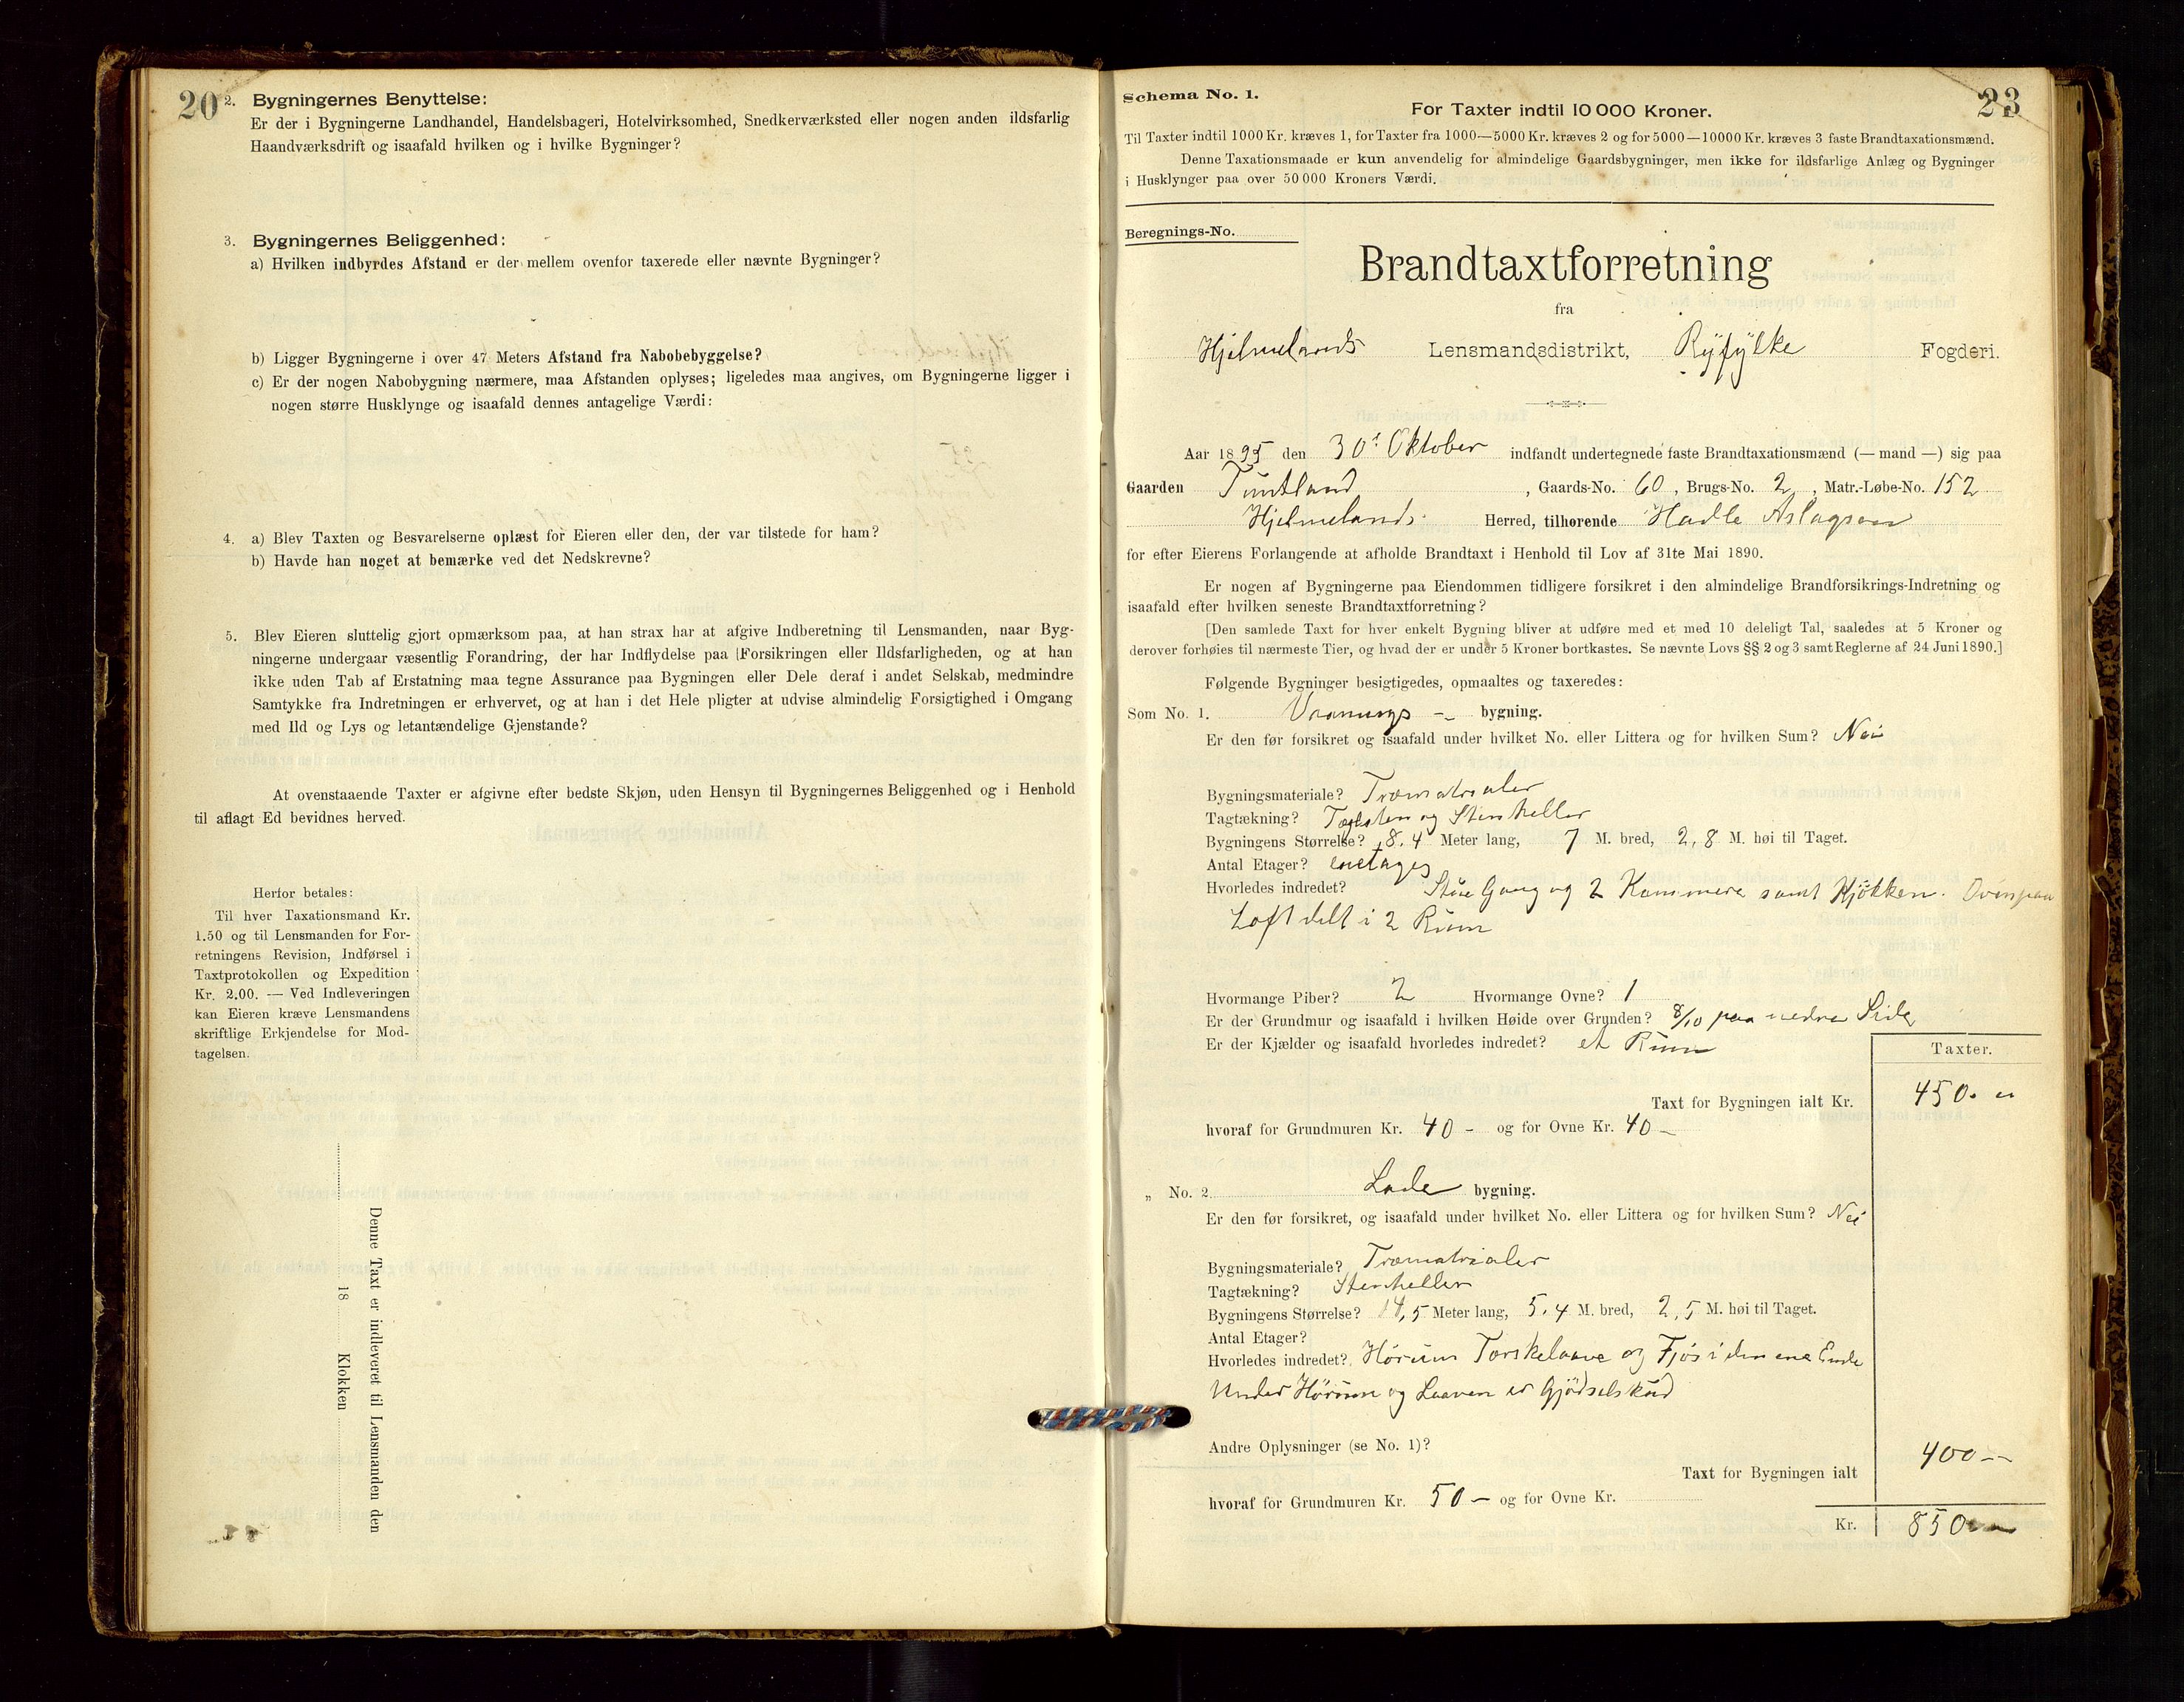 20
2. Bygningernes Benyttelse:
Er der i Bygningerne Landhandel, Handelsbageri, Hotelvirksomhed, Snedkerværksted eller nogen anden ildsfarlig
Haandværksdrift og isaafald hvilken og i hvilke Bygninger?
3. Bygningernes Beliggenhed:
a) Hvilken indbyrdes Afstand er der mellem ovenfor taxerede eller nævnte Bygninger?
b) Ligger Bygningerne i over 47 Meters Afstand fra Nabobebyggelse?
c) Er der nogen Nabobygning nærmere, maa Afstanden oplyses; ligeledes maa angives, om Bygningerne ligger i
nogen større Husklynge og isaafald dennes antagelige Værdi:
4. a) Blev Taxten og Besvarelserne oplæst for Eieren eller den, der var tilstede for ham?
b) Havde han noget at bemærke ved det Nedskrevne?
5. Blev Eieren sluttelig gjort opmærksom paa, at han strax har at afgive Indberetning til Lensmanden, naar Byg-
ningerne undergaar væsentlig Forandring, der har Indflydelse paa Forsikringen eller Ildsfarligheden, og at han
ikke uden Tab af Erstatning maa tegne Assurance paa Bygningen eller Dele deraf i andet Selskab, medmindre
Samtykke fra Indretningen er erhvervet, og at han i det Hele pligter at udvise almindelig Forsigtighed i Omgang
med Ild og Lys og letantændelige Gjenstande?
At ovenstaaende Taxter er afgivne efter bedste Skjøn, uden Hensyn til Bygningernes Beliggenhed og i Henhold
til aflagt Ed bevidnes herved.
Herfor betales:
Til hver Taxationsmand Kr.
1.50 og til Lensmanden for For-
retningens Revision, Indførsel i
Taxtprotokollen og Expedition
Kr. 2.00. — Ved Indleveringen
kan Eieren kræve Lensmandens
skriftlige Erkjendelse for Mod-
tagelsen.
Denne Taxt er indleveret til Lensmanden den
18 Klokken
Schema No. 1.
23
For Taxter indtil 10 000 Kroner.
Til Taxter indtil 1000 Kr. kræves 1, for Taxter fra 1000—5000 Kr. kræves 2 og for 5000—10000 Kr. kræves 3 faste Brandtaxationsmænd.
Denne Taxationsmaade er kun anvendelig for almindelige Gaardsbygninger, men ikke for ildsfarlige Anlæg og Bygninger
i Husklynger paa over 50 000 Kroners Værdi.
Beregnings-No.
Brandtaxtforretning
fra
Hjelmelands Lensmandsdistrikt, Ryfylke Fogderi.
Aar 1895 den 30t Oktober indfandt undertegnede faste Brandtaxationsmænd (— mand —) sig paa
Gaarden Tuntland, Gaards-No. 60, Brugs-No. 2, Matr.-Løbe-No. 152
Hjelmelands Herred, tilhørende Hadle Aslagsen
for efter Eierens Forlangende at afholde Brandtaxt i Henhold til Lov af 31te Mai 1890.
Er nogen af Bygningerne paa Eiendommen tidligere forsikret i den almindelige Brandforsikrings-Indretning og
isaafald efter hvilken seneste Brandtaxtforretning?
[Den samlede Taxt for hver enkelt Bygning bliver at udføre med et med 10 deleligt Tal, saaledes at 5 Kroner og
derover forhøies til nærmeste Tier, og hvad der er under 5 Kroner bortkastes. Se nævnte Lovs §§ 2 og 3 samt Reglerne af 24 Juni 1890.]
Følgende Bygninger besigtigedes, opmaaltes og taxeredes:
Som No. 1. Vaanings - bygning.
Er den før forsikret og isaafald under hvilket No. eller Littera og for hvilken Sum? Nei
Bygningsmateriale? Træmatrialer
Tagtækning? Tagsten og Stenheller
Bygningens Størrelse? 8.4 Meter lang, 7 M. bred, 2,8 M. høi til Taget.
Antal Etager? enetages
Hvorledes indredet? Stue Gang og 2 Kammere samt Kjøkken. Ovenpaa
Loft delt i 2 Rum
Hvormange Piber? 2 Hvormange Ovne? 1
Er der Grundmur og isaafald i hvilken Høide over Grunden? 8/10 paa nedre Side
Er der Kjælder og isaafald hvorledes indredet? et Rum
Taxter.
Taxt for Bygningen ialt Kr. 450.
hvoraf for Grundmuren Kr. 40 - og for Ovne Kr. 40 -
„ No. 2. Lade bygning.
Er den før forsikret, og isaafald under hvilket No. eller Littera og for hvilken Sum? Nei
Bygningsmateriale? Træmatrialer
Tagtækning? Stenheller
Bygningens Størrelse? 14,5 Meter lang, 5.4 M. bred, 2,5 M. høi til Taget.
Antal Etager?
Hvorledes indredet? Hørum Tørskelaave og Fjøs i den ene Ende
Under Hørum og Laaven er Gjødselskud
Andre Oplysninger (se No. 1)?
Taxt for Bygningen ialt 400 --
hvoraf for Grundmuren Kr. 50 - og for Ovne Kr.
Kr. 850